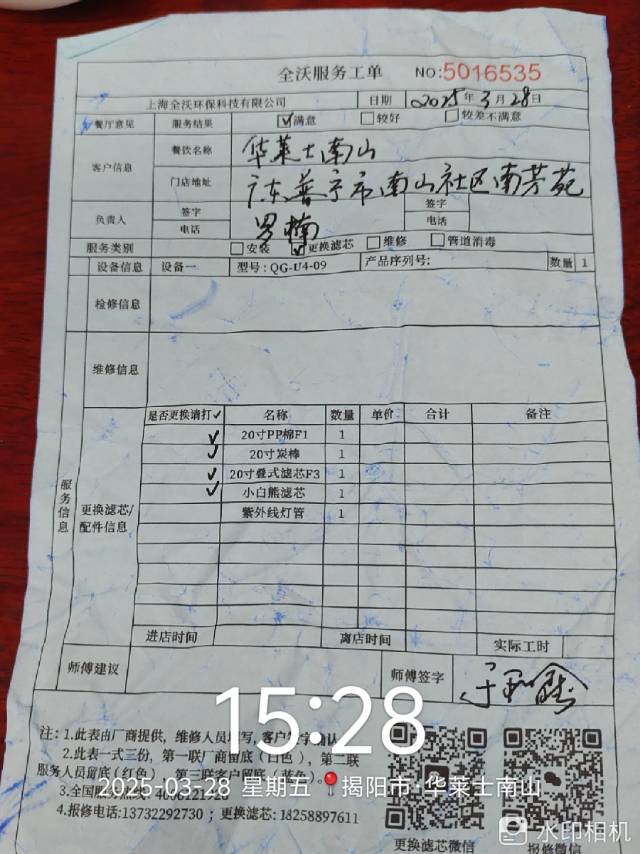 全沃服务工单 NO:5016535
上海全沃环保科技有限公司 日期 2025年3月28日
餐厅意见 服务结果 ☑满意 □较好 □较差不满意
客户信息 餐饮名称 华莱士南山
门店地址 广东普宁市南山社区南芳苑
负责人 签字 签字
电话 电话
服务类别 □安装 ☑更换滤芯 □维修 □管道消毒
设备信息 设备一 型号:QG-U4-09 产品序列号: 数量 1
检修信息
维修信息
服务信息
更换滤芯/配件信息
是否更换请打✓ 名称 数量 单价 合计 备注
✓ 20寸PP棉F1 1
✓ 20寸炭棒 1
✓ 20寸叠式滤芯F3 1
✓ 小白熊滤芯 1
紫外线灯管 1
进店时间 离店时间 实际工时
师傅建议 师傅签字
15:28
注: 1.此表由厂商提供，维修人员填写，客户签字确认
2.此表一式三份，第一联厂商留底(白色)，第二联
服务人员留底(红色) 第三联客户留底(蓝色)。
2025-03-28 星期五 揭阳市·华莱士南山
3.全国服务热线:
4.报修电话:13732292730；更换滤芯:18258897611
更换滤芯微信 报修微信
水印相机